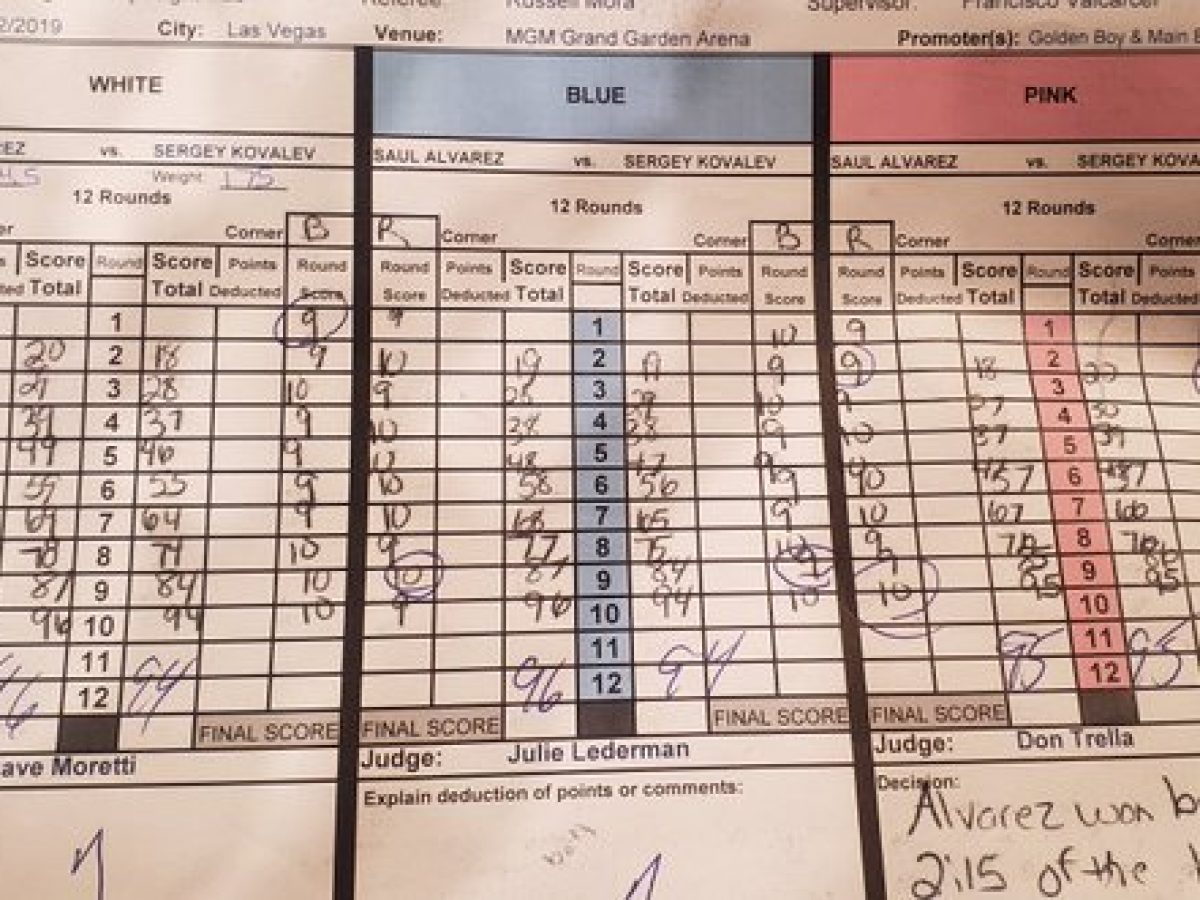 2/2019 City: Las Vegas Venue: MGM Grand Garden Arena Promoter(s): Golden Boy & Main
Referee: Russell Mora Supervisor: Francisco Valcarcel
WHITE BLUE PINK
EZ vs. SERGEY KOVALEV SAUL ALVAREZ vs. SERGEY KOVALEV SAUL ALVAREZ vs. SERGEY KOVA
Weight 175
12 Rounds 12 Rounds 12 Rounds
er Corner B R Corner Corner B R Corner Corner
Score Round Score Points Round Round Points Score Round Score Points Round Round Points Score Round Score Points
ted Total Total Deducted Score Score Deducted Total Total Deducted Score Score Deducted Total Total Deducted
1 9 9 1 10 9 1
20 2 18 9 10 19 2 19 9 9 18 2 20
3 28 10 9 28 3 10 9 3
39 4 37 9 10 38 4 38 9 10 37 4 39
49 5 46 9 10 48 5 47 9 5
59 6 55 9 10 58 6 56 9 10 57 6 57
69 7 64 9 10 68 7 65 9 10 67 7 66
78 8 74 10 9 77 8 75 10 9 76 8 76
87 9 84 10 10 87 9 84 9 10 9
96 10 94 10 9 96 10 94 10 95 10 95
11 11 11
96 12 94 96 12 94 95 12 95
FINAL SCORE FINAL SCORE FINAL SCORE FINAL SCORE
ave Moretti Judge: Julie Lederman Judge: Don Trella
Explain deduction of points or comments: Decision:
Alvarez won b
2:15 of the